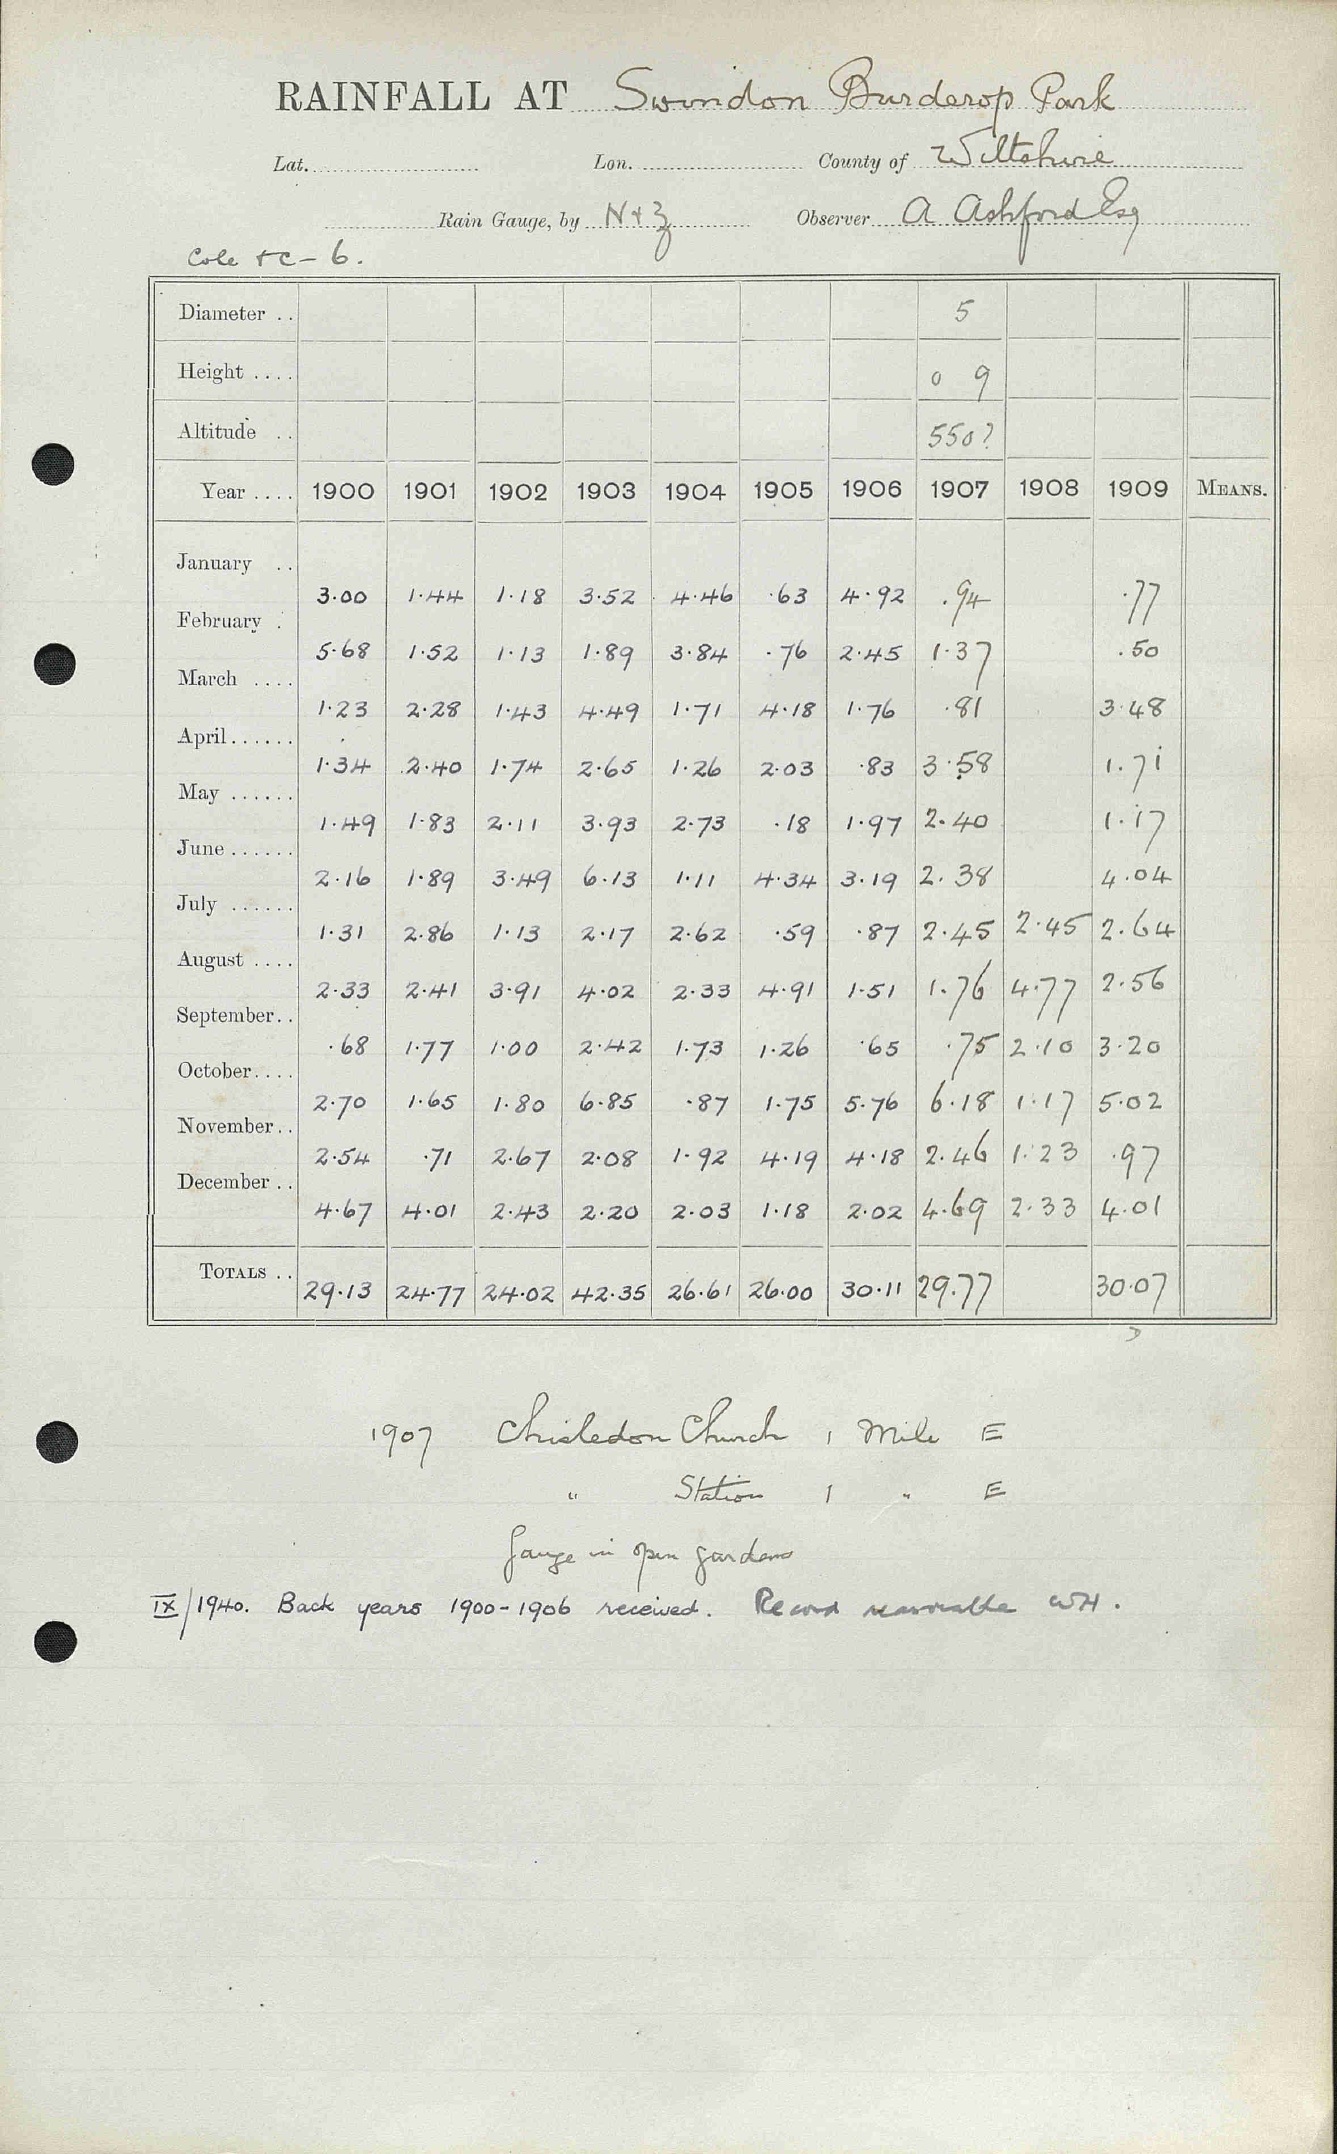 RAINFALL AT Swindon Burderop Park
Lat. Lon. County of Wiltshire
Rain Gauge, by N+Z Observer A Ashford Esq
Diameter .. 5
Height .... 0 9
Altitude .. 550?
Year .... 1900 1901 1902 1903 1904 1905 1906 1907 1908 1909 MEANS.
January .. 3.00 1.44 1.18 3.52 4.46 .63 4.92 .94 .77
February . 5.68 1.52 1.13 1.89 3.84 .76 2.45 1.37 .50
March .... 1.23 2.28 1.43 4.49 1.71 4.18 1.76 .81 3.48
April...... 1.34 2.40 1.74 2.65 1.26 2.03 .83 3.58 1.71
May ...... 1.49 1.83 2.11 3.93 2.73 .18 1.97 2.40 1.17
June...... 2.16 1.89 3.49 6.13 1.11 4.34 3.19 2.38 4.04
July ...... 1.31 2.86 1.13 2.17 2.62 .59 .87 2.45 2.45 2.64
August .... 2.33 2.41 3.91 4.02 2.33 4.91 1.51 1.76 4.77 2.56
September.. .68 1.77 1.00 2.42 1.73 1.26 .65 .75 2.10 3.20
October.... 2.70 1.65 1.80 6.85 .87 1.75 5.76 6.18 1.17 5.02
November.. 2.54 .71 2.67 2.08 1.92 4.19 4.18 2.46 1.23 .97
December .. 4.67 4.01 2.43 2.20 2.03 1.18 2.02 4.69 2.33 4.01
TOTALS .. 29.13 24.77 24.02 42.35 26.61 26.00 30.11 29.77 30.07
1907 Chisledon Church 1 Mile E
" Station 1 " E
Gauge in open gardens
IX/1940. Back years 1900-1906 received. Record reasonable WH.